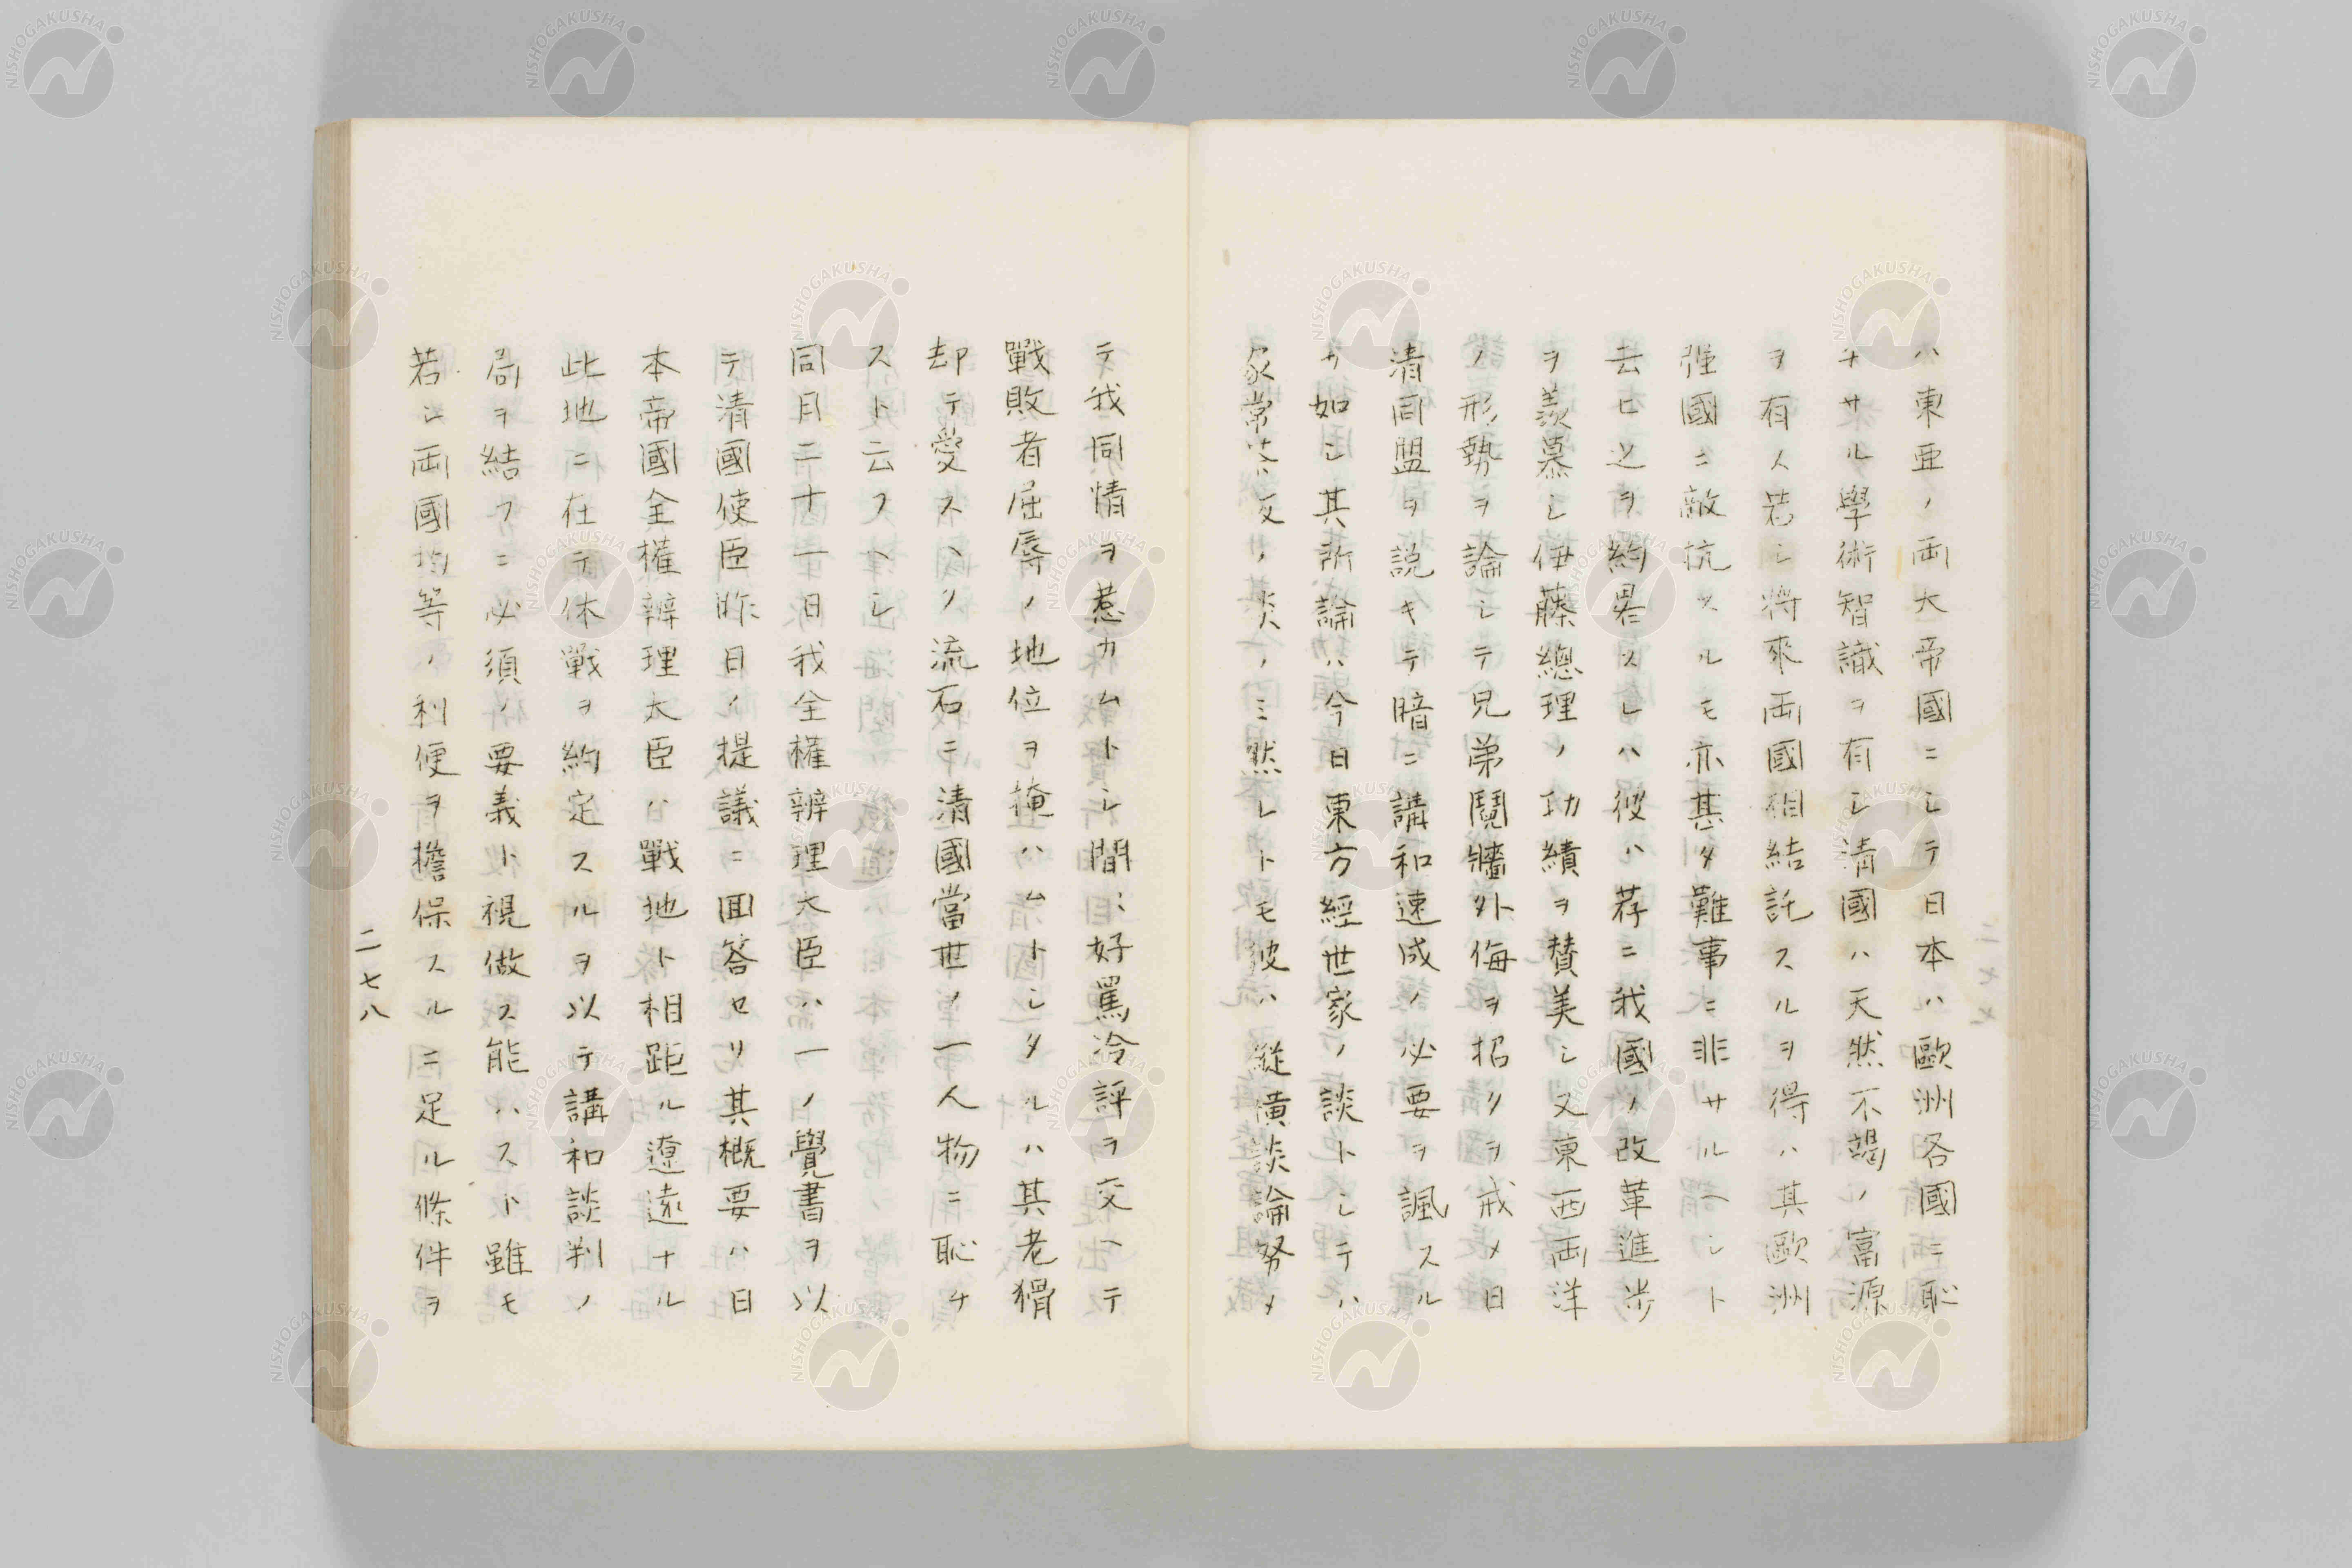 ハ東亜ノ両大帝國ニシテ日本ハ歐洲各國ニ恥
チサル學術智識ヲ有シ清國ハ天然不竭ノ富源
ヲ有ス若シ將來両國相結託スルヲ得ハ其歐洲
强國ニ敵抗スルモ亦甚タ難事ニ非サルヘシト
云ヒ之ヲ約畧スレハ彼ハ荐ニ我國ノ改革進歩
ヲ羨慕シ伊藤總理ノ功績ヲ賛美シ又東西両洋
ノ形勢ヲ論シテ兄弟鬩牆外侮ヲ招クヲ戒メ日
清同盟ヲ説キテ暗ニ講和速成ノ必要ヲ諷スル
カ如シ其所論ハ今日東方經世家ノ談トシテハ
家常茶飯ノミ然レトモ彼ハ縦横談論努メ
テ我同情ヲ惹カムトシ間〻好罵冷評ヲ交ヘテ
戰敗者屈辱ノ地位ヲ掩ハムトシタルハ其老猾
却テ愛スヘク流石ニ清國當世ノ一人物ニ恥チ
スト云フヘシ
同月二十一日我全權辨理大臣ハ一ノ覺書ヲ以
テ清國使臣昨日ノ提議ニ囬答セリ其概要ハ日
本帝國全權辨理大臣ハ戰地ト相距ル遼遠ナル
此地ニ在テ休戰ヲ約定スルヲ以テ講和談判ノ
局ヲ結フニ必須ノ要義ト視做ス能ハスト雖モ
若シ両國均等ノ利便ヲ擔保スルニ足ル條件ヲ
二七八
NISHOGAKUSHA